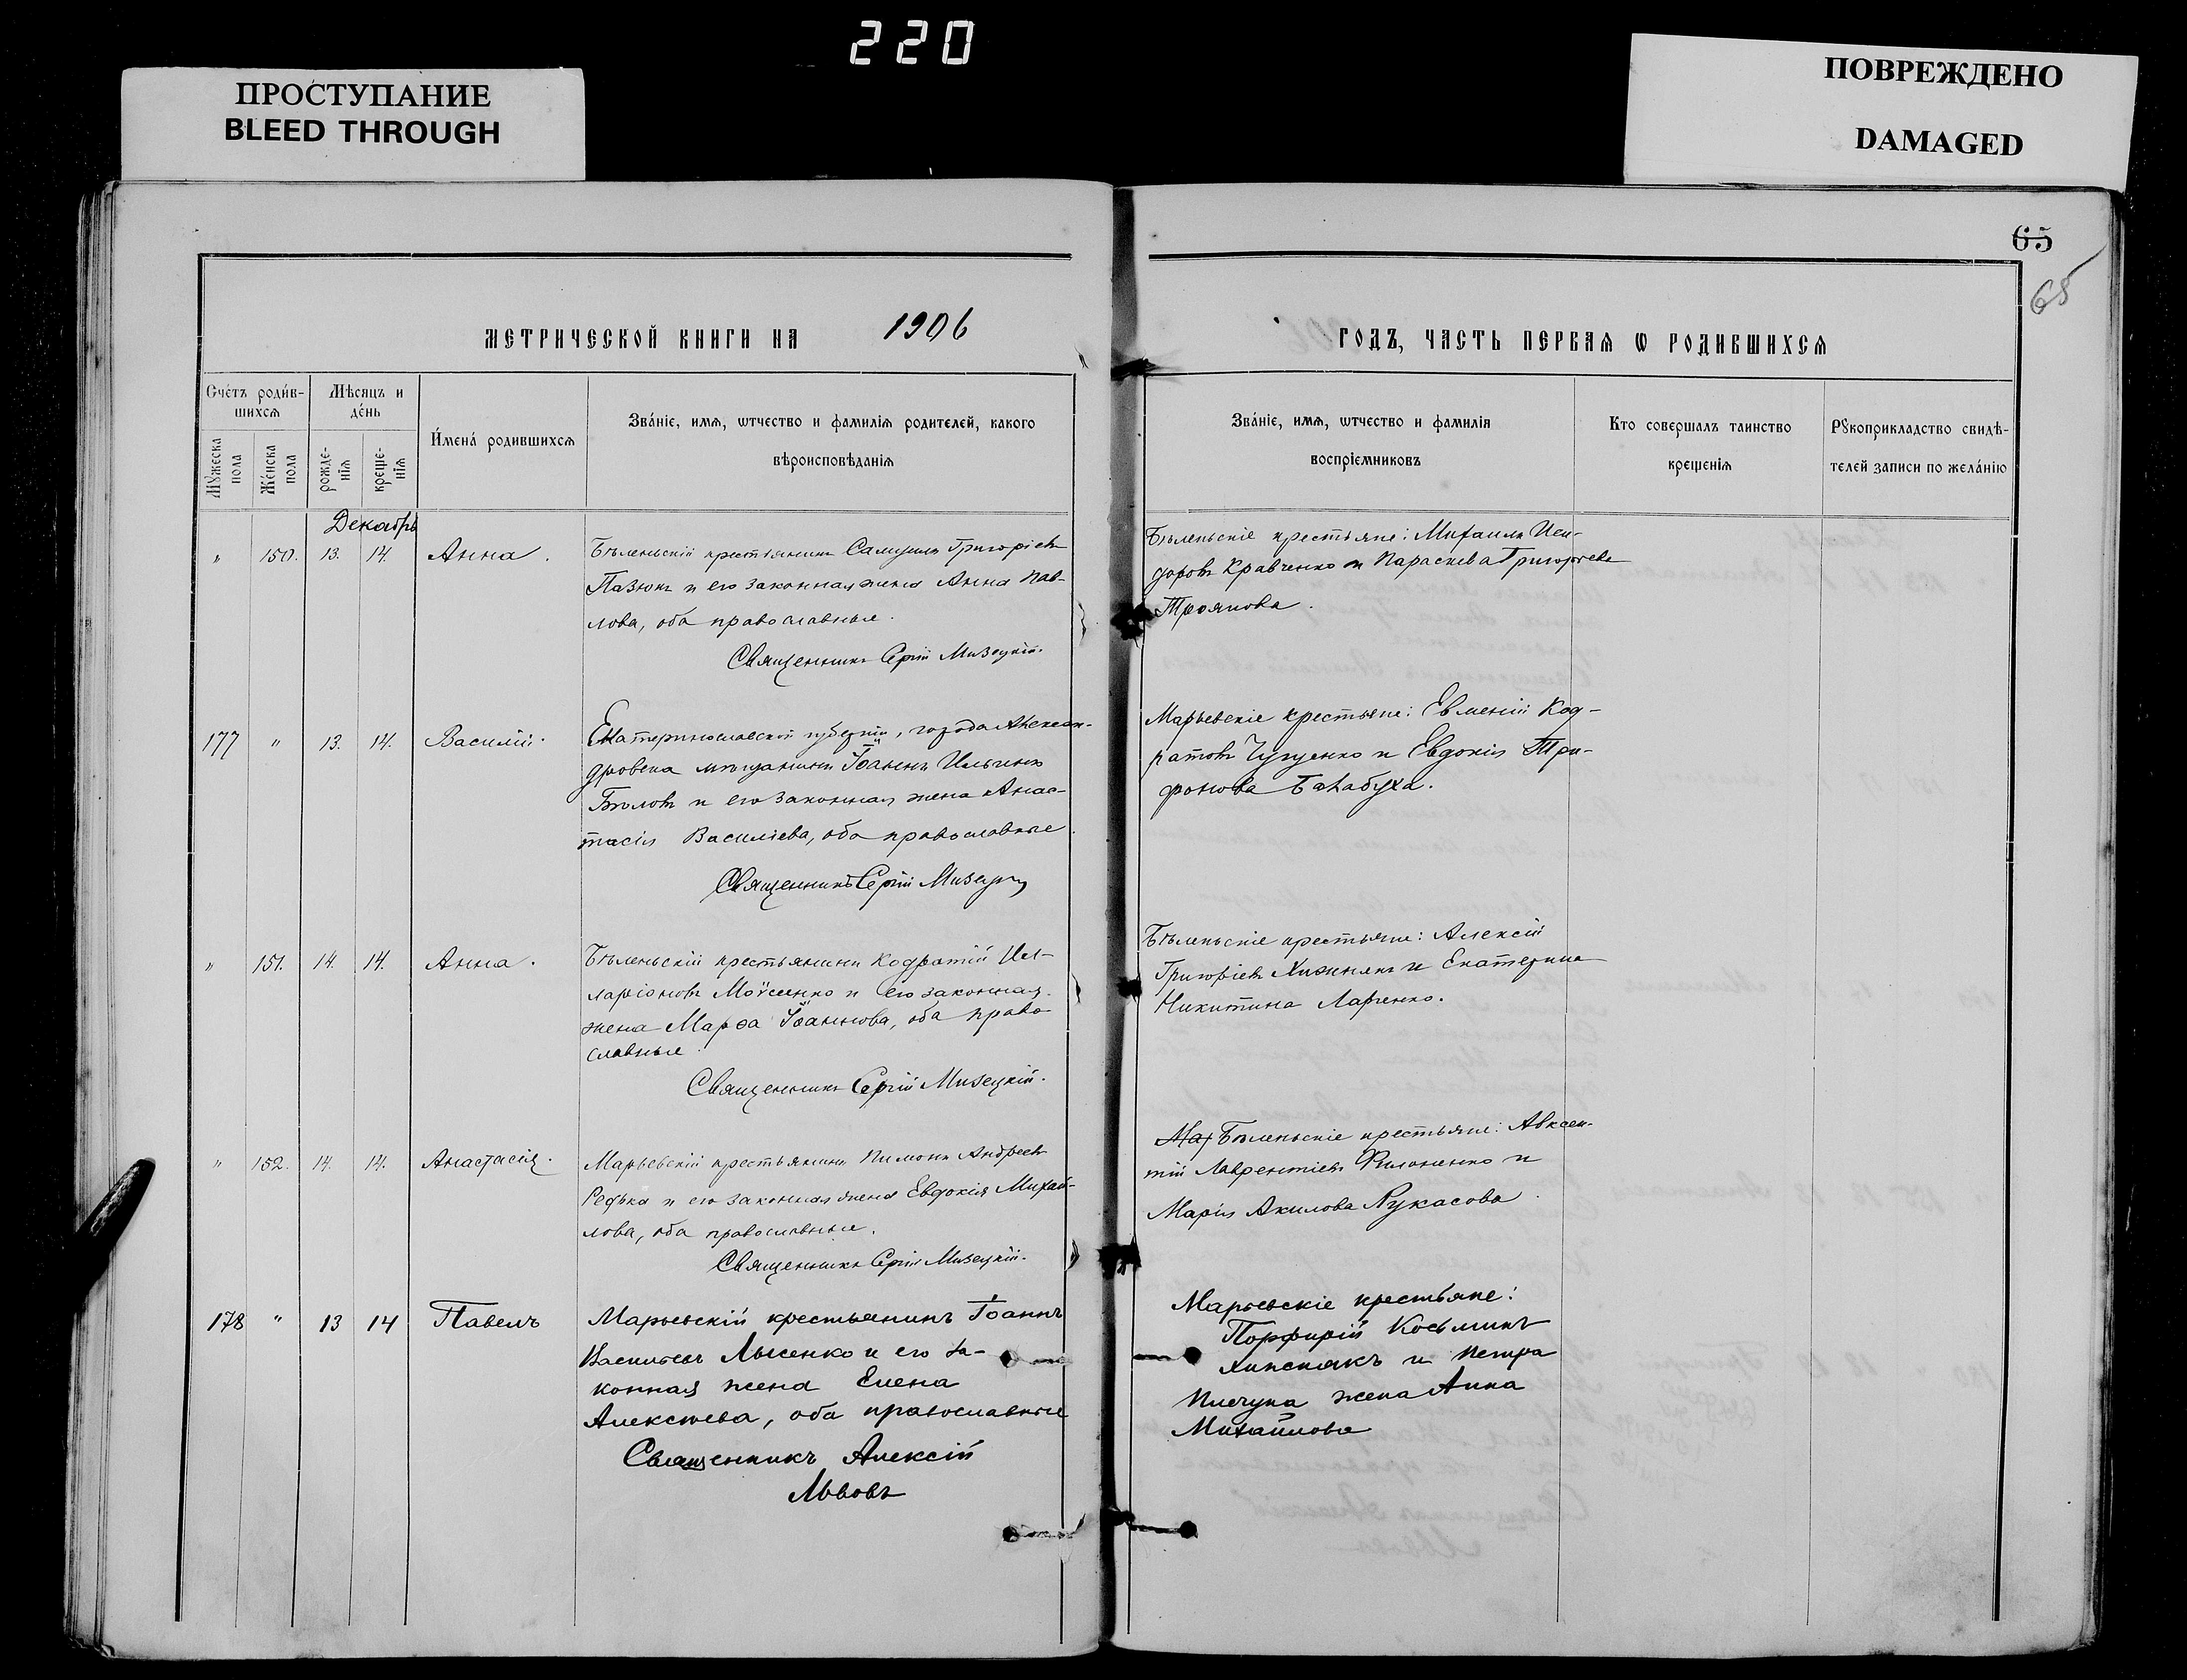 220
ПРОСТУПАНИЕ
BLEED THROUGH
ПОВРЕЖДЕНО
DAMAGED
65
65
МЕТРИЧЕСКОЙ КНИГИ НА 1906
ГОДЪ, ЧАСТЬ ПЕРВАѦ Ѡ РОДИВШИХСѦ
Счетъ родив-
шихсѧ
Мꙋжеска
пола
Женска
пола
Мѣсяцъ и
день
рожде-
нїѧ
креще-
нїѧ
Имена родившихсѧ
Званїе, имѧ, ѿчество и фамилїѧ родителей, какого
вѣроисповѣданїѧ
Званїе, имѧ, ѿчество и фамилїѧ
воспрїемниковъ
Кто совершалъ таинство
крещенїѧ
Рꙋкоприкладство свидѣ-
телей записи по желанїю
Декабрь
" 150. 13. 14. Анна.
Бѣленьскій крестьянинъ Самуилъ Григоріевъ
Пазюкъ и его законная жена Анна Пав-
лова, оба православные.
Священникъ Сергій Мизецкій.
Бѣленьскіе крестьяне: Михаилъ Иси-
доровъ Кравченко и Параскева Григорьева
Троянова.
177 " 13. 14. Василій.
Екатеринославской губерніи, города Алексан-
дровска мѣщанинъ Іоаннъ Ильинъ
Бѣловъ и его законная жена Анас-
тасія Василіева, оба православные.
Священникъ Сергій Мизецкій
Марьевскіе крестьяне: Евменій Код-
ратовъ Чугуенко и Евдокія Три-
фонова Балабуха.
" 151. 14. 14. Анна.
Бѣленьскій крестьянинъ Кодратій Ил-
ларіоновъ Моѵсеенко и его законная
жена Марѳа Іоаннова, оба право-
славные.
Священникъ Сергій Мизецкій.
Бѣленьскіе крестьяне: Алексій
Григоріевъ Хижнякъ и Екатерина
Никитина Ларченко.
" 152. 14. 14. Анастасія.
Марьевскій крестьянинъ Пимонъ Андреевъ
Редька и его законная жена Евдокія Михай-
лова, оба православные.
Священникъ Сергій Мизецкій.
Мар Бѣленьскіе крестьяне: Авксен-
тій Лаврентіевъ Филоненко и
Марія Акилова Лукасова.
178 " 13 14 Павелъ
Марьевскій крестьянинъ Іоаннъ
Васильевъ Лысенко и его за-
конная жена Елена
Алексѣева, оба православные
Священникъ Алексій
Львовъ
Марьевскіе крестьяне:
Порфирій Косьминъ
и Петра
Плечуна жена Анна
Михайлова